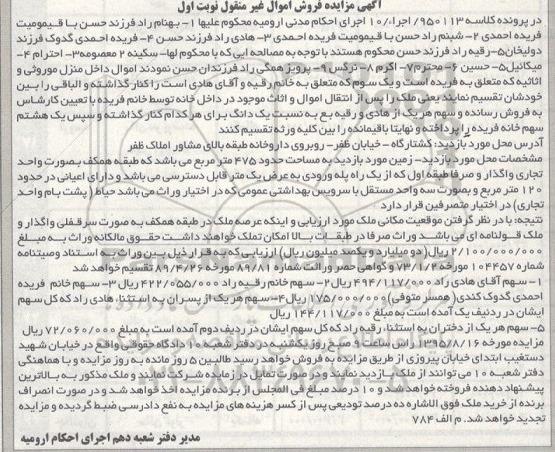 آگهی مزایده فروش اموال غیر منقول نوبت اول
در پرونده کلاسه ۹۵۰۱۱۳/اجرا،/۱۰ اجرای احکام مدنی ارومیه محکوم علیها ۱- بهنام راد فرزند حسن با قیمومیت
فریده احمدی ۲- شبنم راد حسن با قیومیت فریده احمدی ۳- هادی راد فرزند حسن ۴- فریده احمدی گدوک فرزند
دولیخان۵-رقیه راد فرزند حسن محکوم هستند با توجه به مصالحه ایی که با محکوم لها- سکینه ۲ معصومه۳- احترام ۴-
میکائیل۵- حسین ۶- محترم۷- اکرم ۸- نرگس ۹- پرویز همگی راد فرزندان حسن نمودند اموال داخل منزل موروثی و
اثاثیه که متعلق به فریده است و یک سوم که متعلق به خانم رقیه و آقای هادی است را کنار گذاشته و الباقی را بین
خودشان تقسیم نمایند یعنی ملک را پس از انتقال اموال و اثاث موجود در داخل خانه توسط خانم فریده با تعیین کارشاس
به فروش رسانده و سهم هر یک از هادی و رقیه بع به نسبت یک دانگ برای هر کدام کنار گذاشته و سپس یک هشتم
سهم خانه فریده را پرداخته و نهایتا باقیمانده را بین کلیه ورثه تقسیم کنند
آدرس محل مورد بازدید: کشتارگاه - خیابان ظفر- روبروی داروخانه طبقه بالای مشاور املاک ظفر
مشخصات محل مورد بازدید- زمین مورد بازدید به مساحت حدود ۴۷۵ متر مربع می باشد که طبقه همکف بصورت واحد
تجاری واگذار و صرفا طبقه اول که از یک راه پله ورودی به عرض یک متر قابل دسترسی می باشد و دارای اعیانی در حدود
۱۲۰ متر مربع و بصورت سه واحد مستقل با سرویس بهداشتی عمومی که در اختیار وراث می باشد حیاط ( پشت بام واحد
تجاری) در اختیار متصرفین قرار دارد
نتیجه: با در نظر گرفتن موقعیت مکانی ملک مورد ارزیابی و اینکه عرصه ملک در طبقه همکف به صورت سرقفلی واگذار و
ملک قولنامه ای می باشند وراث صرفا در طبقات بالا امکان تملک خواهند داشت حقوق مالکانه وراث به مبلغ
۲/۱۰۰/۰۰۰/۰۰۰ ریال( دو میلیارد و یکصد میلیون ریال) ارزیابی که به قرار ذیل بین وراث به استناد وصیتنامه
شماره ۱۰۴۴۵۷ مورخه ۷۲/۱/۲ و گواهی حصر وراثت شماره ۸۹/۸۱۰ مورخه ۸۹/۴/۲۶ تقسیم خواهد شد
۱- سهم آقای هادی راد ۴۹۴/۱۱۷/۰۰۰ ریال ۲- سهم خانم رقیه راد ۴۲۲/۰۵۵/۰۰۰ ریال ۳- سهم خانم فریده
احمدی گدوک کندی( همسر متوفی) ۱۷۵/۰۰۰/۰۰۰ ریال۴- سهم هر یک از پسران به استثنا، هادی راد که کل سهم
ایشان در ردنیف یک آمده است به مبلغ ۱۴۴/۱۱۷/۰۰۰ ریال
۵- سهم هر یک از دختران به استثنا، رقیه راد که کل سهم ایشان در ردیف دوم آمده است به مبلغ ۷۲/۰۶۰/۰۰۰ ریال
مزایده مورخه ۱۳۹۵/۸/۱۶ راس ساعت ۱۰ صبح روز یکشنبه در دفتر شعبه ۱۰ دادگاه حقوقی واقع در خیابان شهید
دستغیب ابتدای خیابان پیروزی از طریق مزایده به فروش خواهد رسید طالبین ۵ روز مانده به روز مزایده و با هماهنگی
دفتر شعبه ۱۰ می توانند از ملک بازدید نمایند و در صورت تمایل در زمانده شرکت نمایند و ملک مذکور به بالاترین
پیشنهاد دهنده فروخته خواهد شد و ۱۰ درصد مبلغ فی المجلس از برنده مزایده اخذ خواهد شد و در صورت انصراف
برنده از خرید ملک فوق الاشاره ده درصد تودیعی پس از کسر هزینه های مزایده به نفع دادرسی ضبط گردیده و مزایده
تجدید خواهد شد. م الف ۷۸۴
مدیر دفتر شعبه دهم اجرای احکام ارومیه